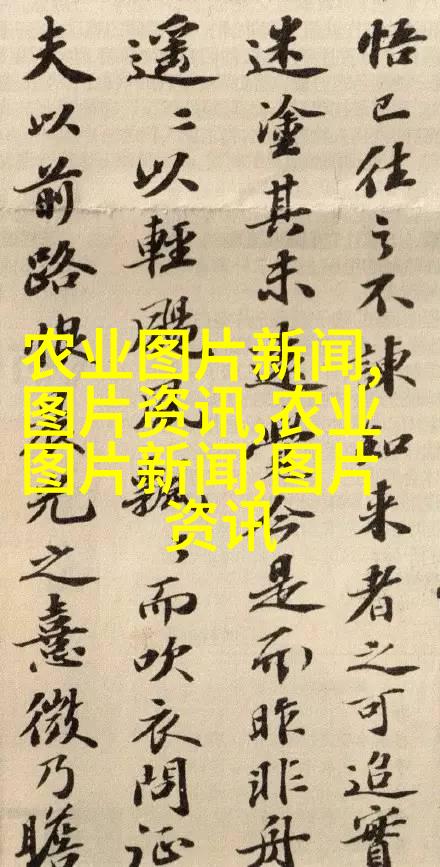 悟已往之不諫知来者之可追實
迷塗其未遠覺今是而昨非舟
遥〻以輕颺風飄〻而吹衣問征
夫以前路恨晨光之熹微乃瞻
农业图片新闻,
图片资讯,农业
图片新闻,图片
资讯